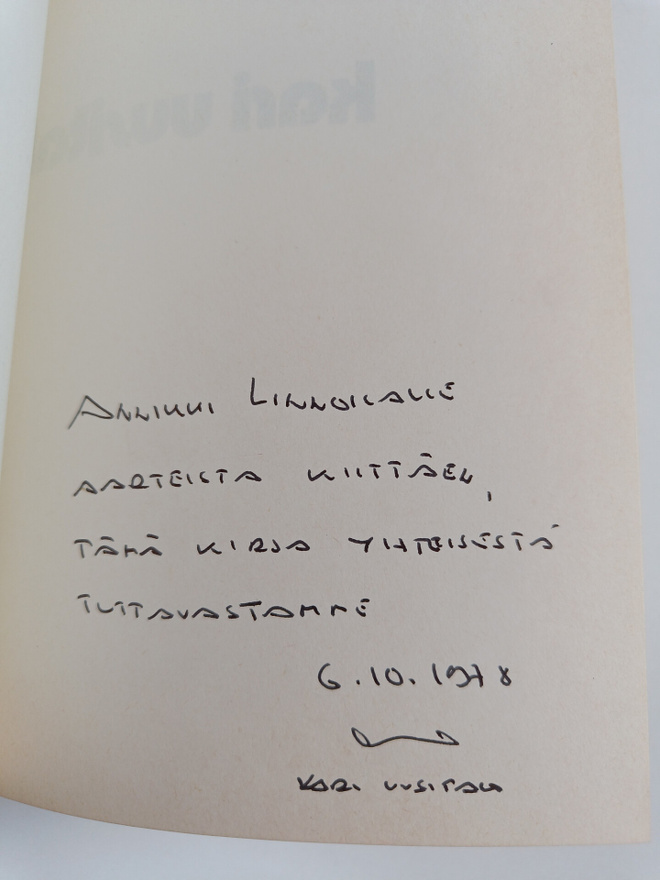 ANNIKKI LINNOILALLE
AARTEISTA KIITTÄEN,
TÄMÄ KIRJA YHTEISESTÄ
TUTTAVASTAMME
6.10.1978
KARI UUSITALO